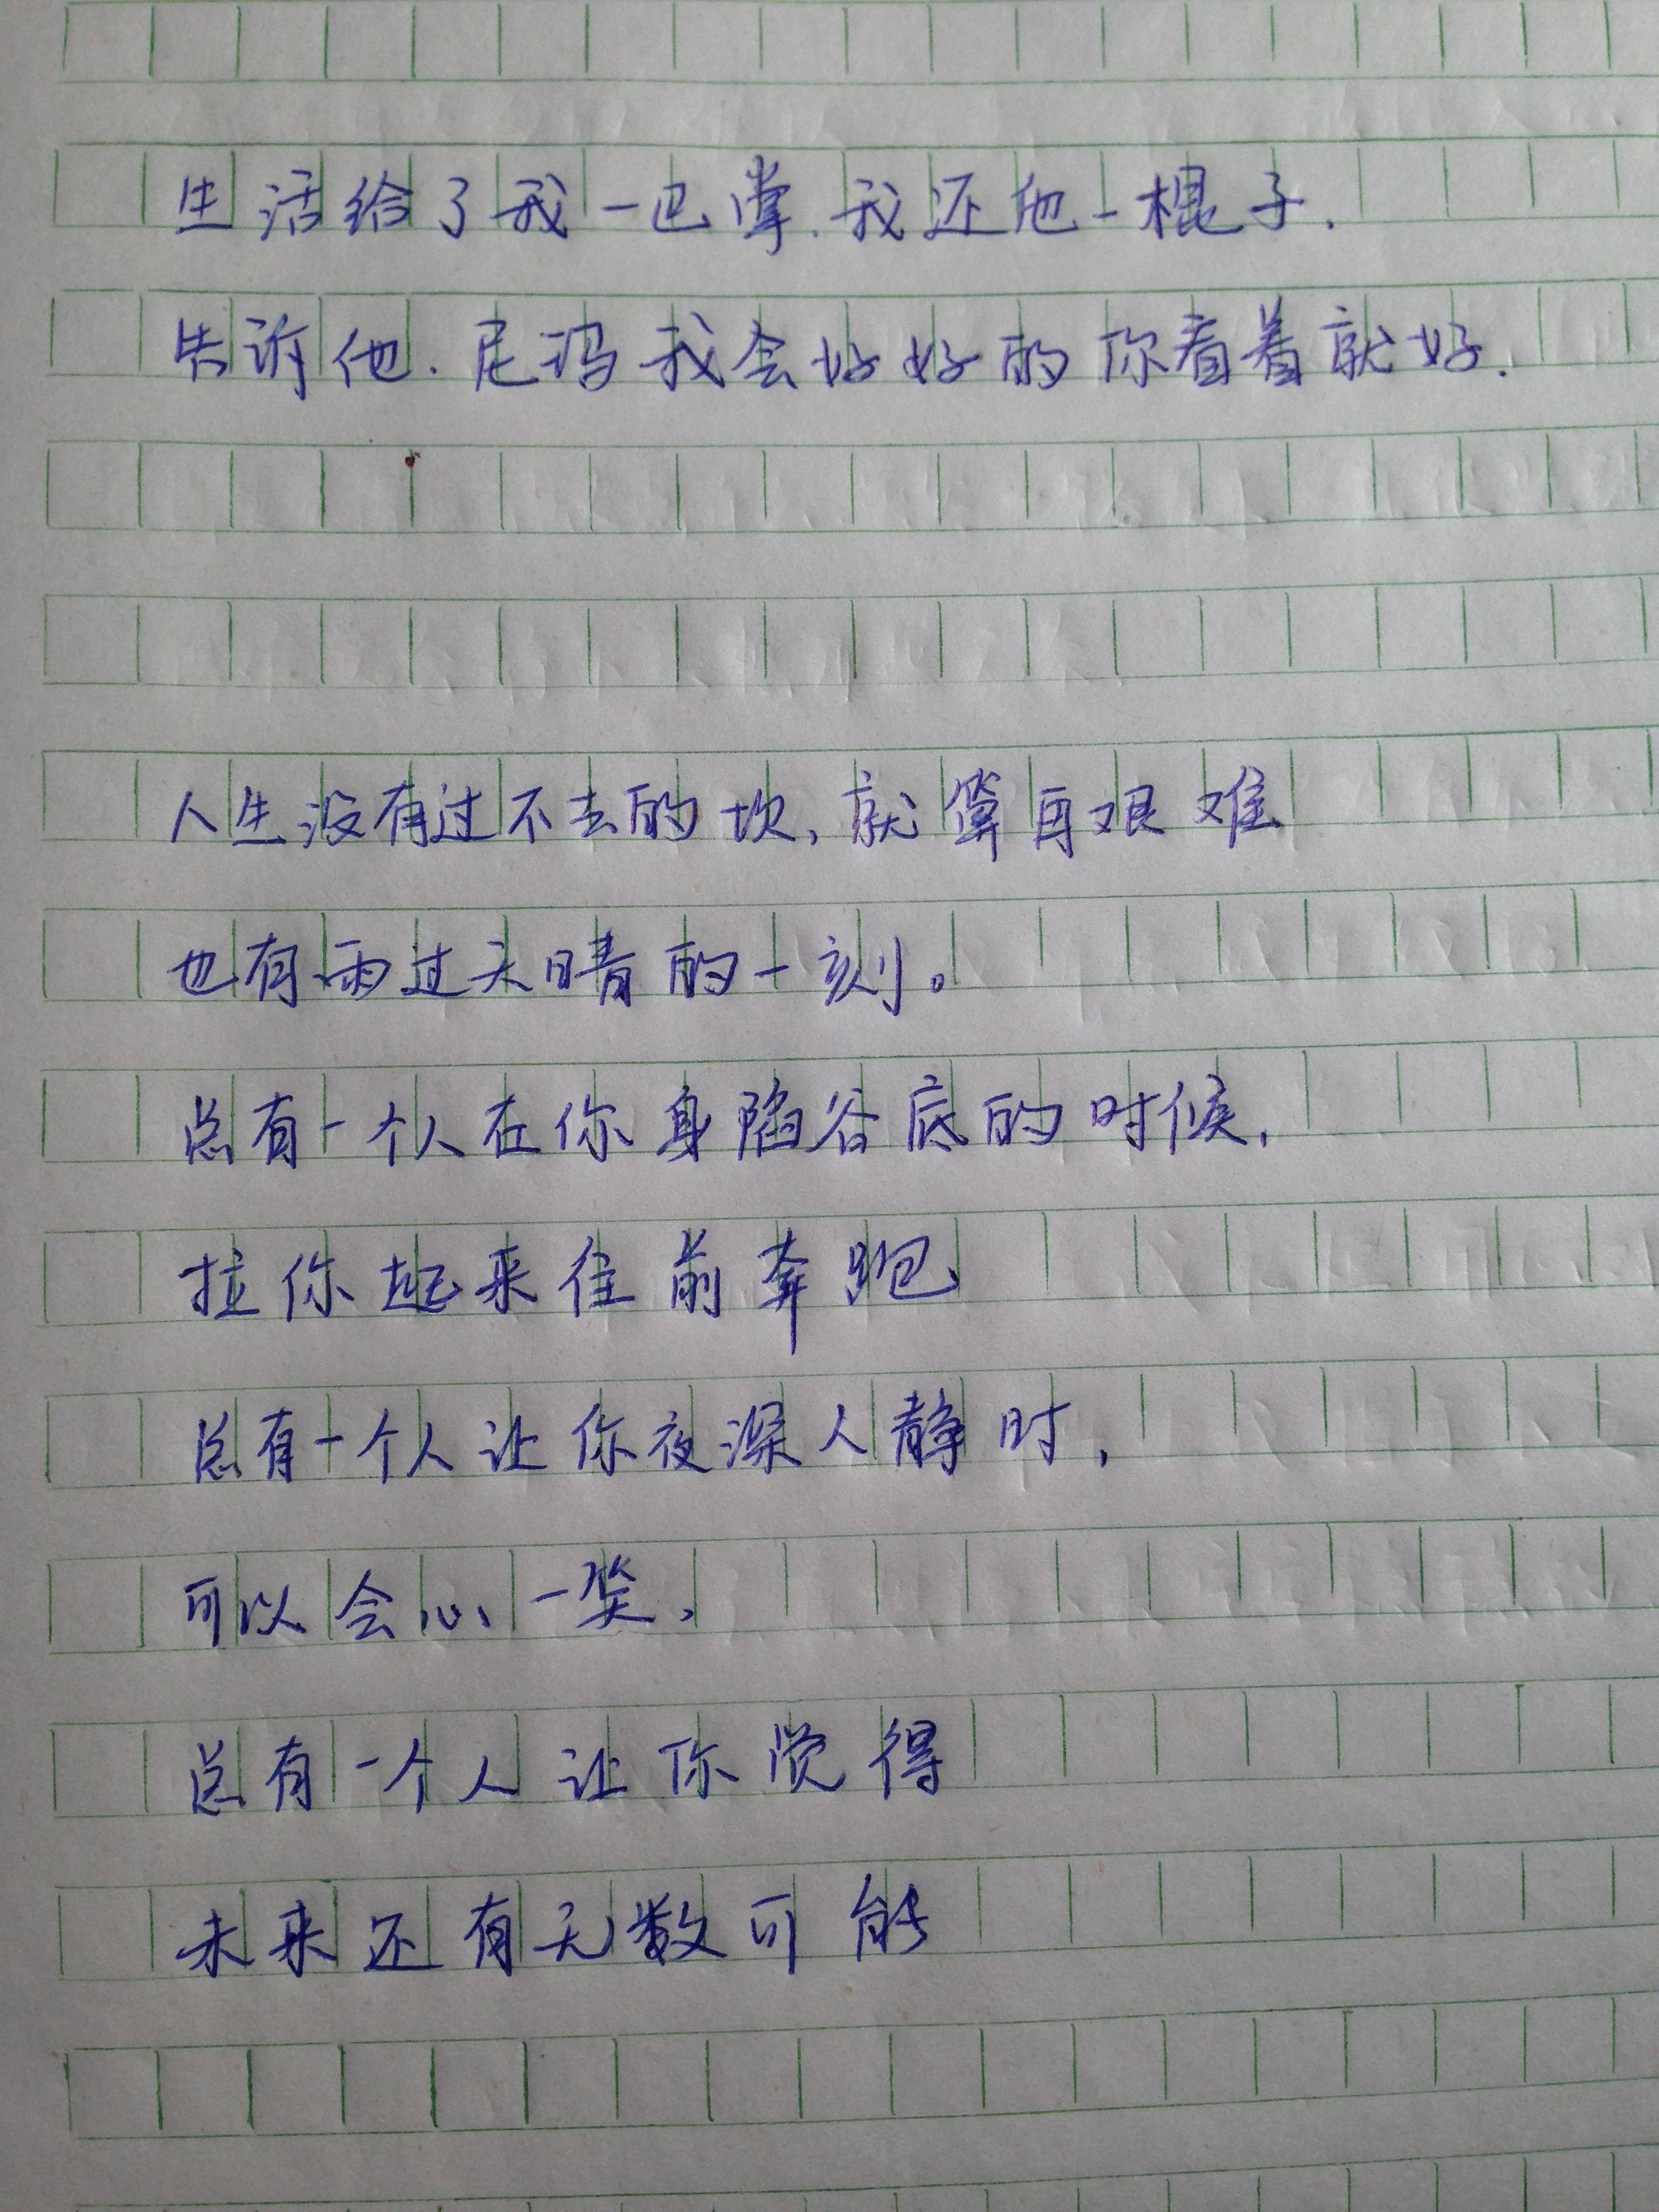 生活给了我一巴掌.我还他一棍子.
告诉他.尼玛我会好好的你看着就好.
人生没有过不去的坎,就算再艰难
也有雨过天晴的一刻。
总有一个人在你身陷谷底的时候,
拉你起来往前奔跑
总有一个人让你夜深人静时,
可以会心一笑,
总有一个人让你觉得
未来还有无数可能